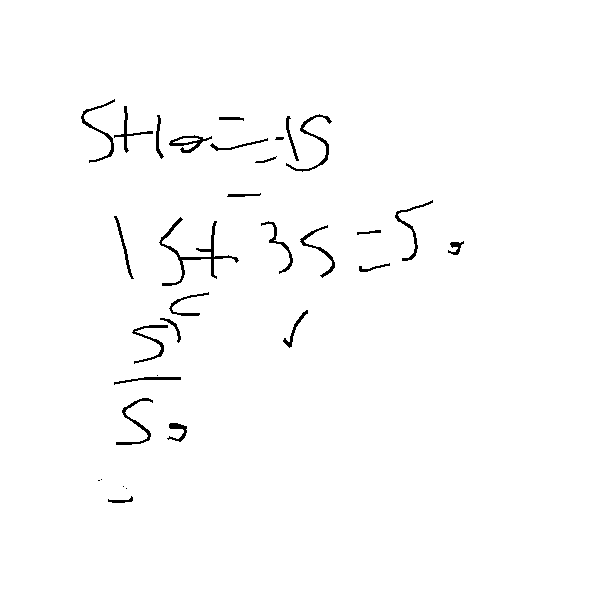 5+10=15
15+35=50
5
50
=